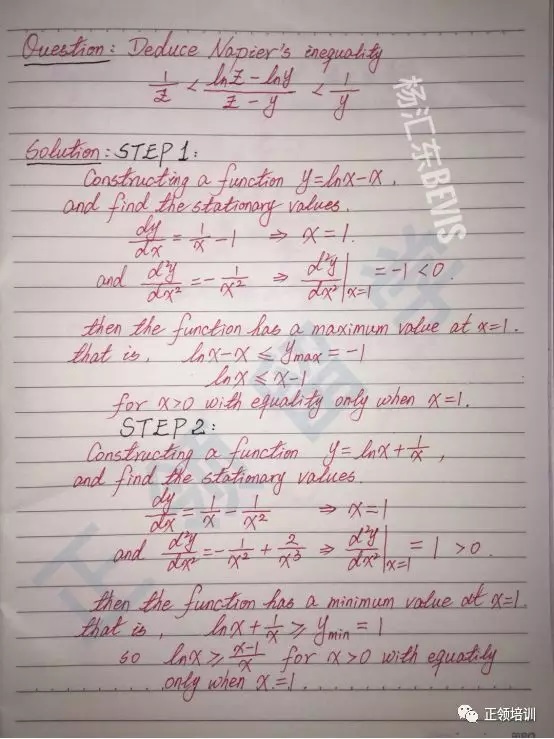 Question: Deduce Napier's inequality
1/z < (ln z - ln y)/(z - y) < 1/y
杨汇东BEVIS
Solution: STEP 1:
Constructing a function y=lnx-x,
and find the stationary values.
dy/dx = 1/x - 1 ⇒ x=1.
and d²y/dx² = -1/x² ⇒ d²y/dx²|x=1 = -1 < 0.
then the function has a maximum value at x=1.
that is, lnx-x ≤ ymax = -1
lnx ≤ x-1
for x>0 with equality only when x=1.
STEP 2:
Constructing a function y=lnx+1/x,
and find the stationary values.
dy/dx = 1/x - 1/x² ⇒ x=1
and d²y/dx² = -1/x² + 2/x³ ⇒ d²y/dx²|x=1 = 1 > 0.
then the function has a minimum value at x=1.
that is, lnx + 1/x ≥ ymin = 1
so lnx ≥ (x-1)/x for x>0 with equatily
only when x=1.
正领培训